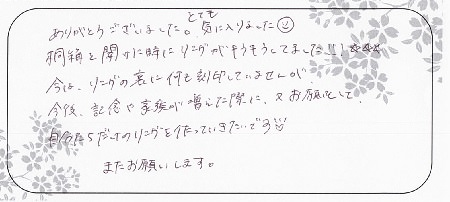 ありがとうございました。とても気に入りました
桐箱を開けた時にリングがキラキラしてました!!
今は、リングの裏に何も刻印していませんが、
今後、記念や家族が増した際に、又お願いして、
自分たちだけのリングを作っていきたいです
またお願いします。